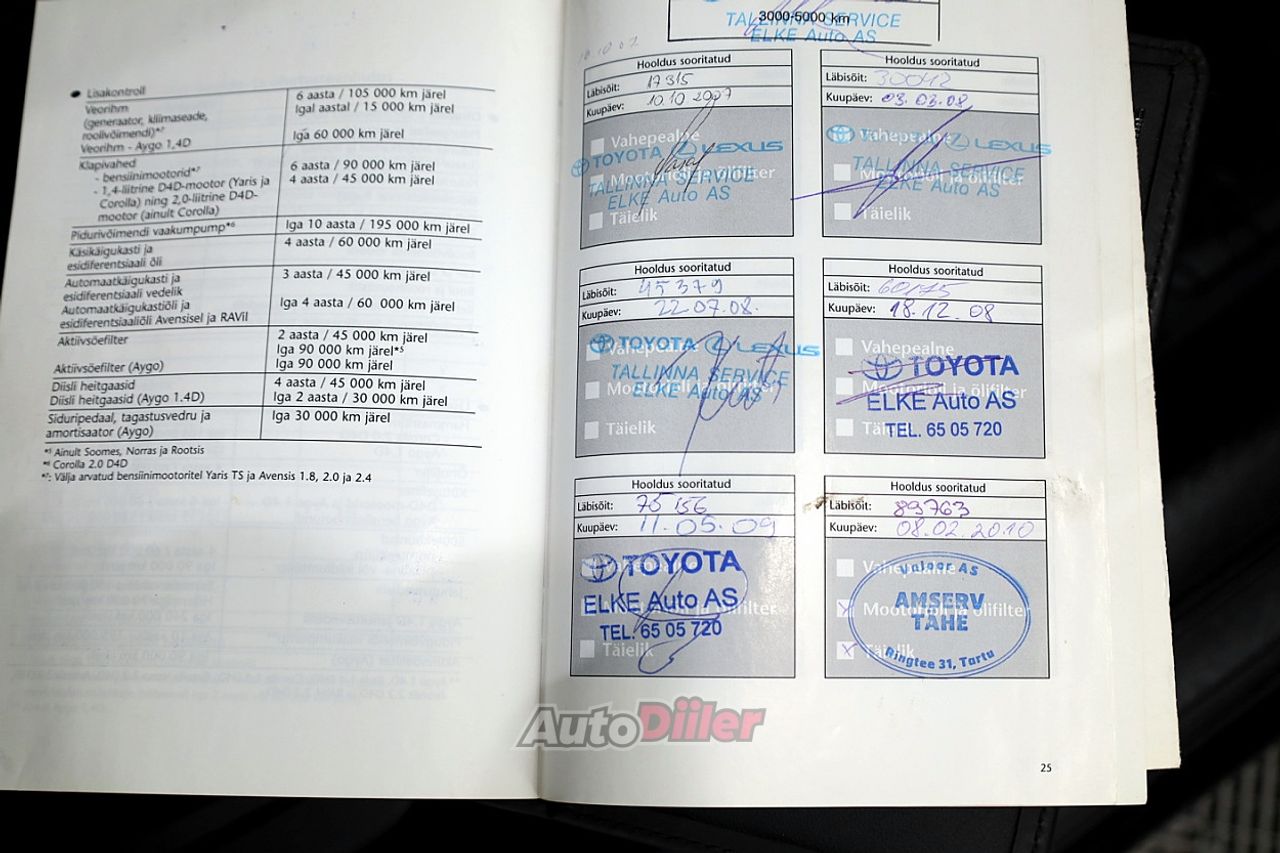 Lisakontroll
6 aasta / 105 000 km järel
Veorihm
(generaator, kliimaseade,
roolivõimendi)*⁷
Igal aastal / 15 000 km järel
Veorihm - Aygo 1,4D
Iga 60 000 km järel
Klapivahed
- bensiinimootorid*⁷
6 aasta / 90 000 km järel
- 1,4-liitrine D4D-mootor (Yaris ja
Corolla) ning 2,0-liitrine D4D-
mootor (ainult Corolla)
4 aasta / 45 000 km järel
Pidurivõimendi vaakumpump*⁶
Iga 10 aasta / 195 000 km järel
Käsikäigukasti ja
esidiferentsiaali õli
4 aasta / 60 000 km järel
Automaatkäigukasti ja
esidiferentsiaali vedelik
3 aasta / 45 000 km järel
Automaatkäigukastiõli ja
esidiferentsiaaliõli Avensisel ja RAVil
Iga 4 aasta / 60 000 km järel
Aktiivsöefilter
2 aasta / 45 000 km järel
Iga 90 000 km järel*⁵
Aktiivsöefilter (Aygo)
Iga 90 000 km järel
Diisli heitgaasid
4 aasta / 45 000 km järel
Diisli heitgaasid (Aygo 1.4D)
Iga 2 aasta / 30 000 km järel
Siduripedaal, tagastusvedru ja
amortisaator (Aygo)
Iga 30 000 km järel
*⁵ Ainult Soomes, Norras ja Rootsis
*⁶ Corolla 2.0 D4D
*⁷: Välja arvatud bensiinimootoritel Yaris TS ja Avensis 1.8, 2.0 ja 2.4
3000-5000 km
TALLINNA SERVICE
ELKE Auto AS
10.10 07
Hooldus sooritatud
Läbisõit: 17315
Kuupäev: 10.10 2007
Vahepealne
TOYOTA LEXUS
Mootoriõli ja õlifilter
TALLINNA SERVICE
ELKE Auto AS
Täielik
Hooldus sooritatud
Läbisõit: 30042
Kuupäev: 03.03.08
Vahepealne
TOYOTA LEXUS
TALLINNA SERVICE
Mootoriõli ja õlifilter
ELKE Auto AS
Täielik
Hooldus sooritatud
Läbisõit: 45379
Kuupäev: 22.07.08.
Vahepealne
TOYOTA LEXUS
TALLINNA SERVICE
Mootoriõli ja õlifilter
ELKE Auto AS
Täielik
Hooldus sooritatud
Läbisõit: 60175
Kuupäev: 18.12.08
Vahepealne
TOYOTA
Mootoriõli ja õlifilter
ELKE Auto AS
Täielik
TEL. 65 05 720
Hooldus sooritatud
Läbisõit: 75156
Kuupäev: 11.05.09
Vahepealne
TOYOTA
ELKE Auto AS
Mootoriõli ja õlifilter
TEL. 65 05 720
Täielik
Hooldus sooritatud
Läbisõit: 89763
Kuupäev: 08.02.2010
Vahepealne
Valoor AS
AMSERV
Mootoriõli ja õlifilter
TÄHE
Täielik
Ringtee 31, Tartu
AutoDiiler
25